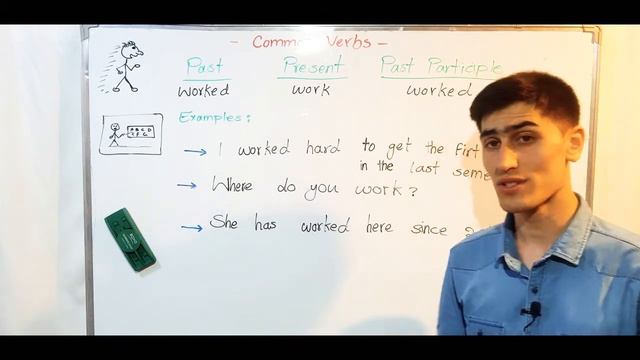 - Common Verbs -
Past Present Past Participle
worked work worked
A B C D
Examples:
→ I worked hard to get the firt
in the last seme
→ Where do you work?
→ She has worked here since